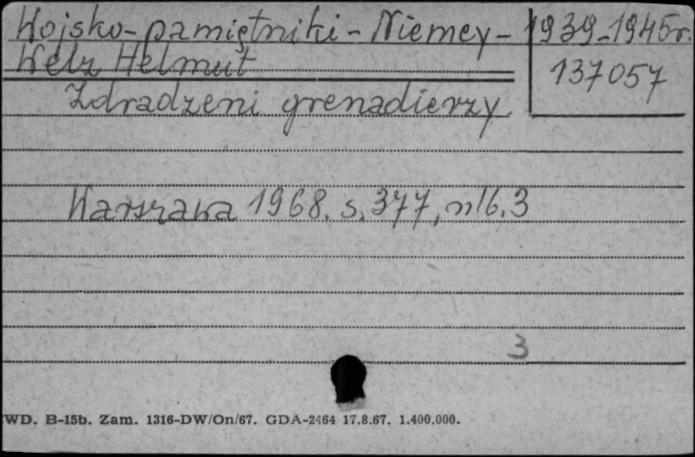 Wojsko-pamiętniki-Niemcy-1939-1945r.
Welz Helmut
137057
Zdradzeni grenadierzy
Warszawa 1968. s. 377, nlb. 3
3
WD. B-15b. Zam. 1316-DW/On/67. GDA-2464 17.8.67. 1.400.000.